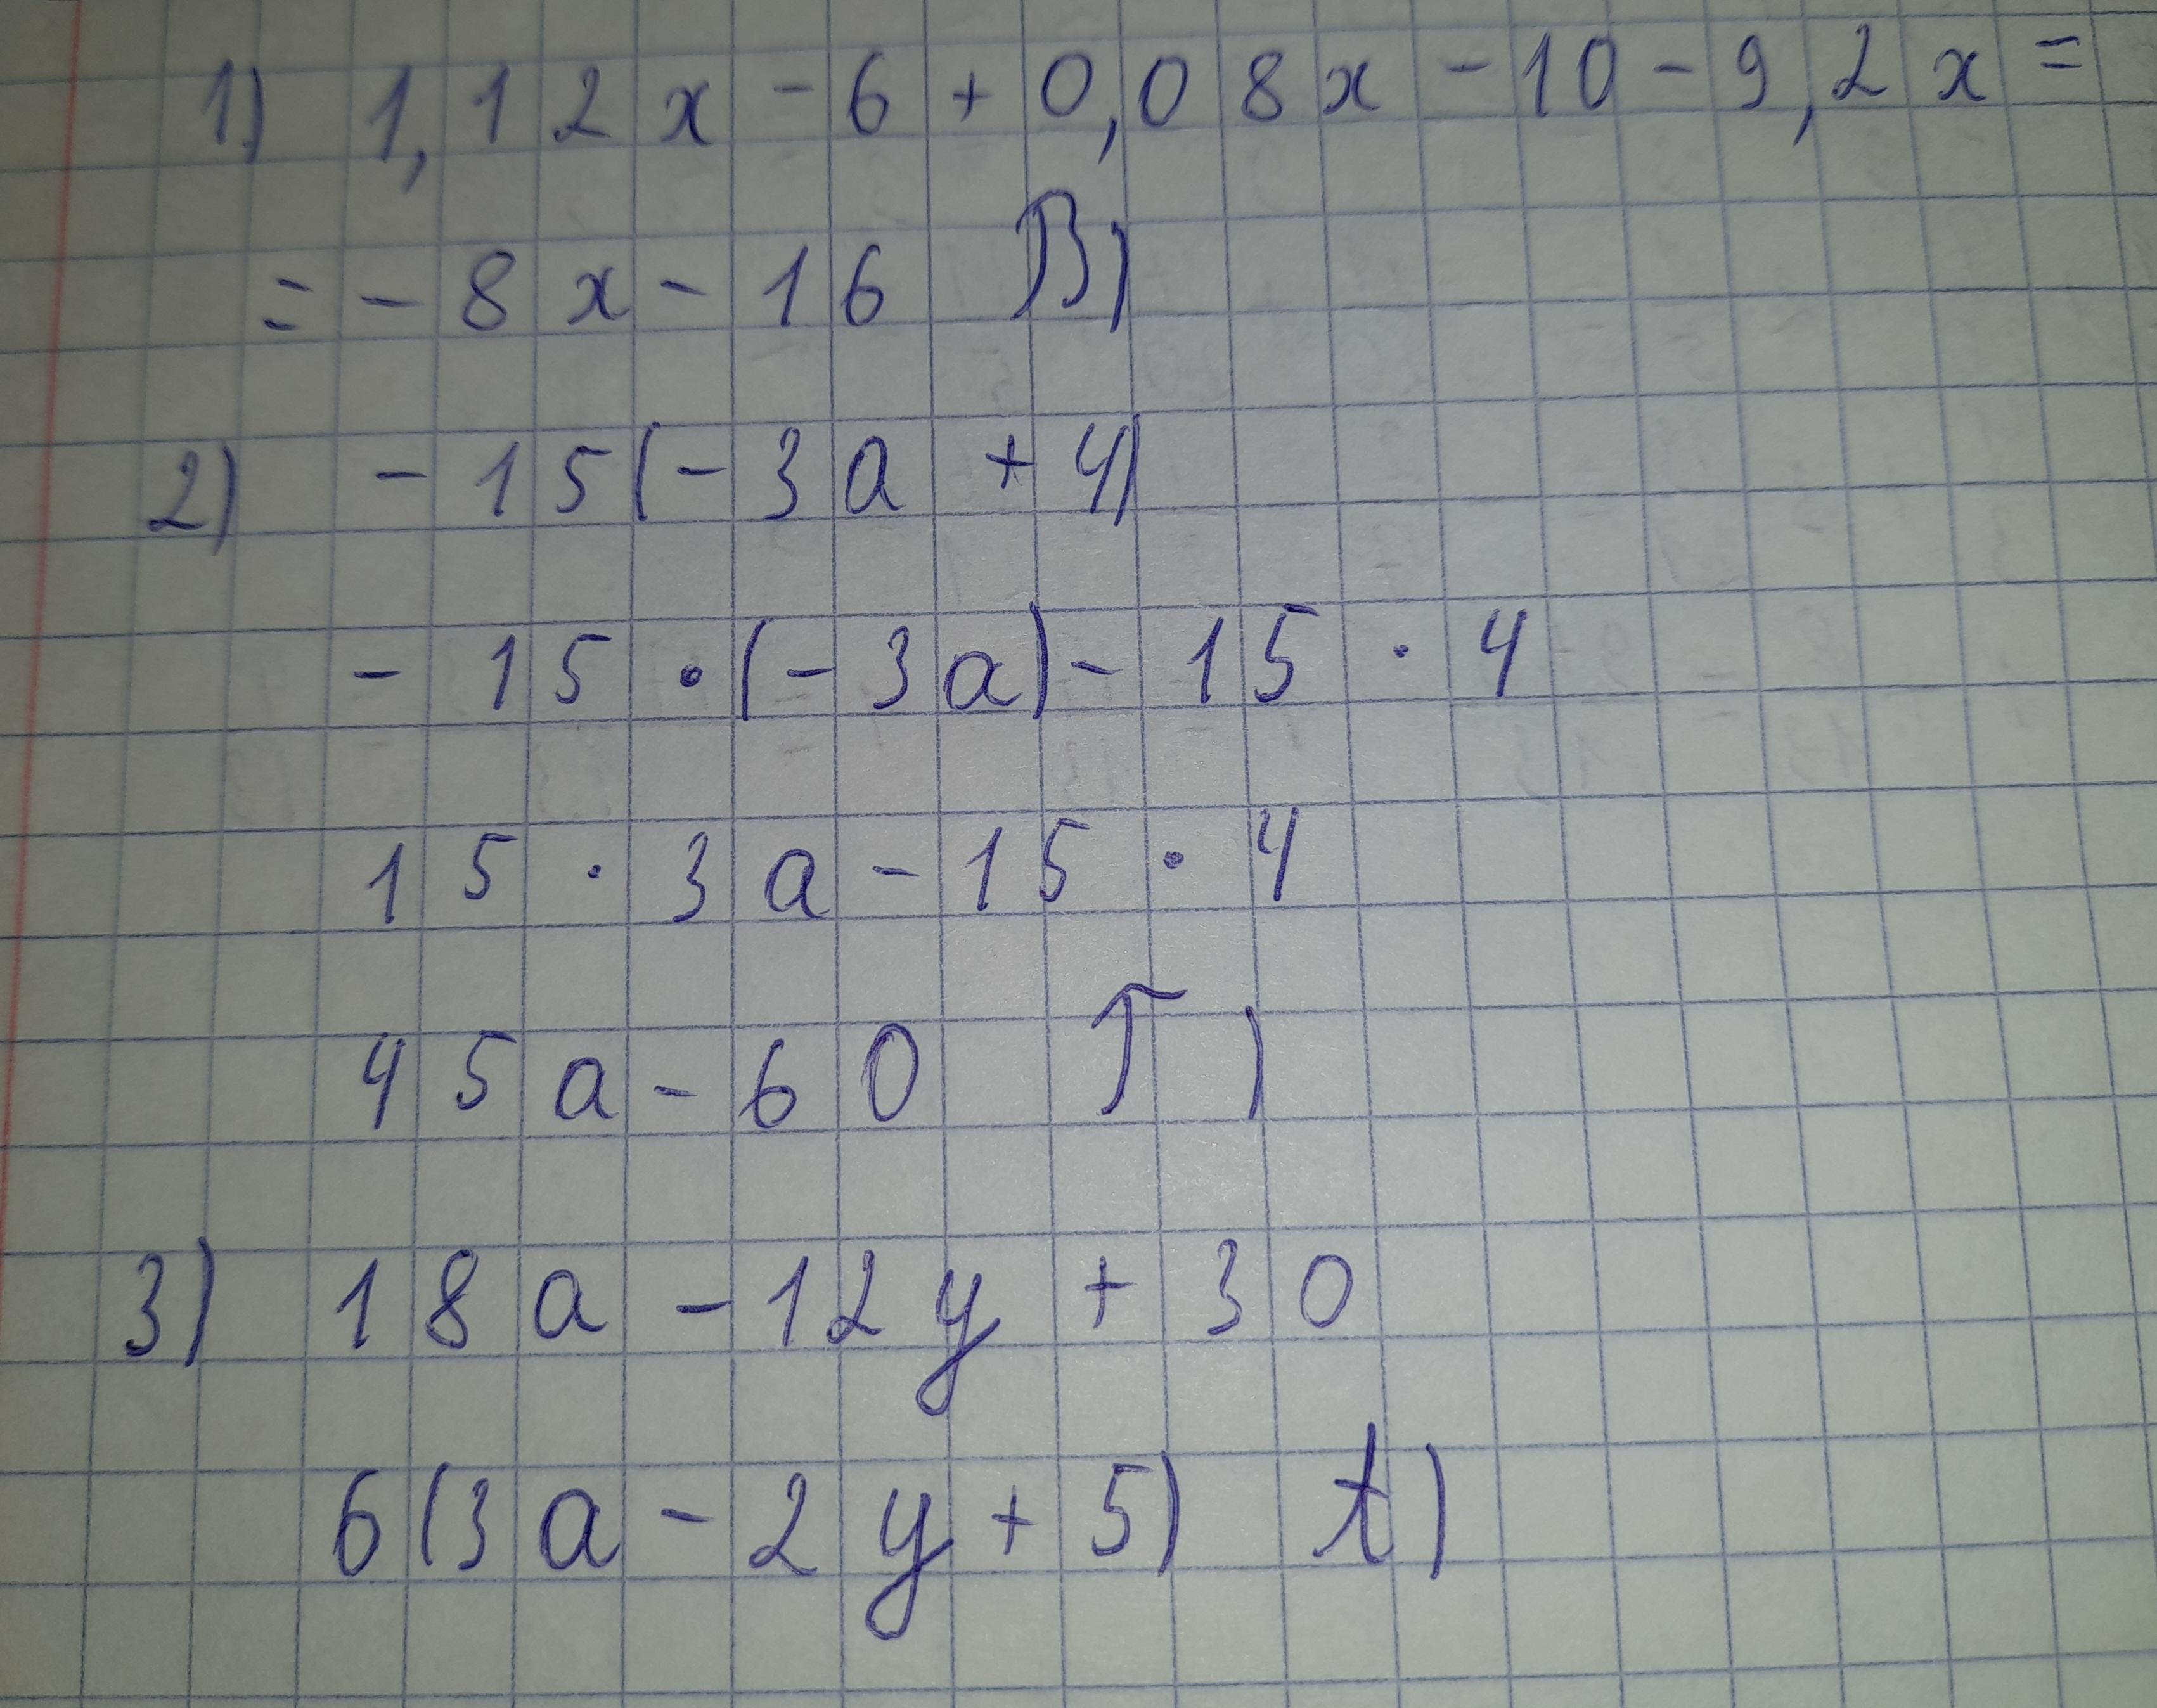 1) 1,12x - 6 + 0,08x - 10 - 9,2x =
= - 8x - 16 В)
2) - 15(- 3a + 4)
- 15 · (- 3a) - 15 · 4
15 · 3a - 15 · 4
45a - 60 Г)
3) 18a - 12y + 30
6(3a - 2y + 5) А)